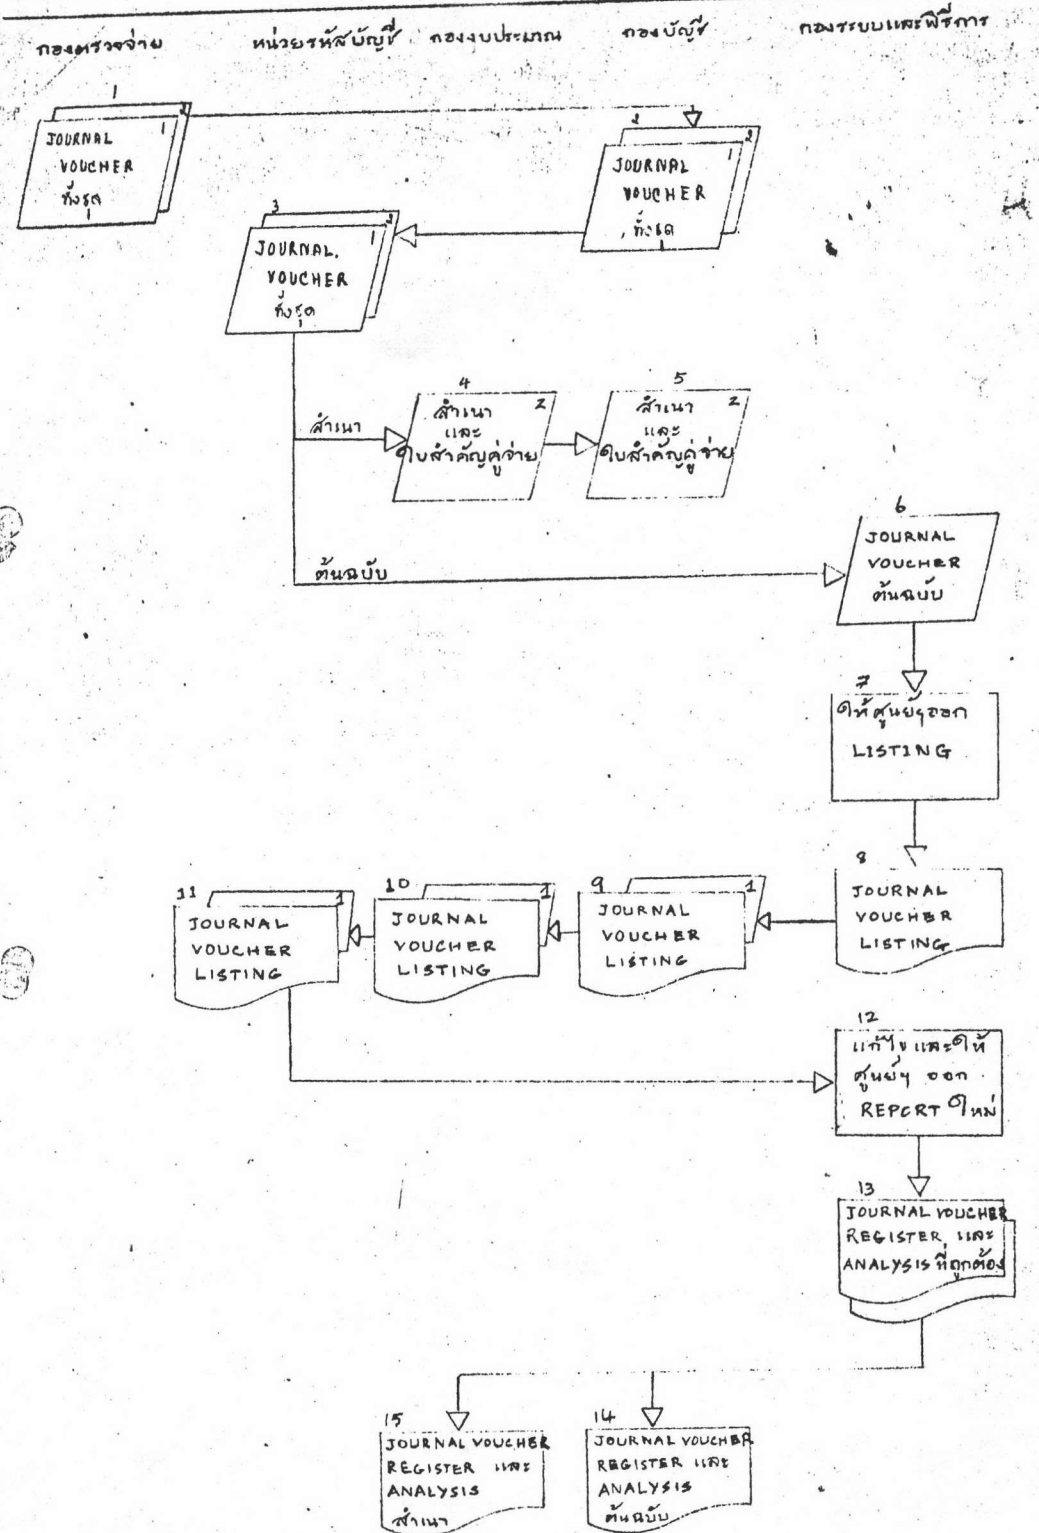 กองตรวจจ่าย
หน่วยรหัสบัญชี
กองงบประมาณ
กองบัญชี
กองระบบและพิธีการ
1
2
1
JOURNAL
VOUCHER
ทั้งชุด
2
2
1
JOURNAL
VOUCHER
ทั้งชุด
3
2
1
JOURNAL.
VOUCHER
ทั้งชุด
สำเนา
4
2
สำเนา
และ
ใบสำคัญคู่จ่าย
5
2
สำเนา
และ
ใบสำคัญคู่จ่าย
ต้นฉบับ
6
JOURNAL
VOUCHER
ต้นฉบับ
7
ให้ศูนย์ฯออก
LISTING
8
JOURNAL
VOUCHER
LISTING
9
1
JOURNAL
VOUCHER
LISTING
10
1
JOURNAL
VOUCHER
LISTING
11
1
JOURNAL
VOUCHER
LISTING
12
แก้ไขและให้
ศูนย์ฯ ออก
REPORT ใหม่
13
JOURNAL VOUCHER
REGISTER และ
ANALYSIS ที่ถูกต้อง
14
JOURNAL VOUCHER
REGISTER และ
ANALYSIS
ต้นฉบับ
15
JOURNAL VOUCHER
REGISTER และ
ANALYSIS
สำเนา